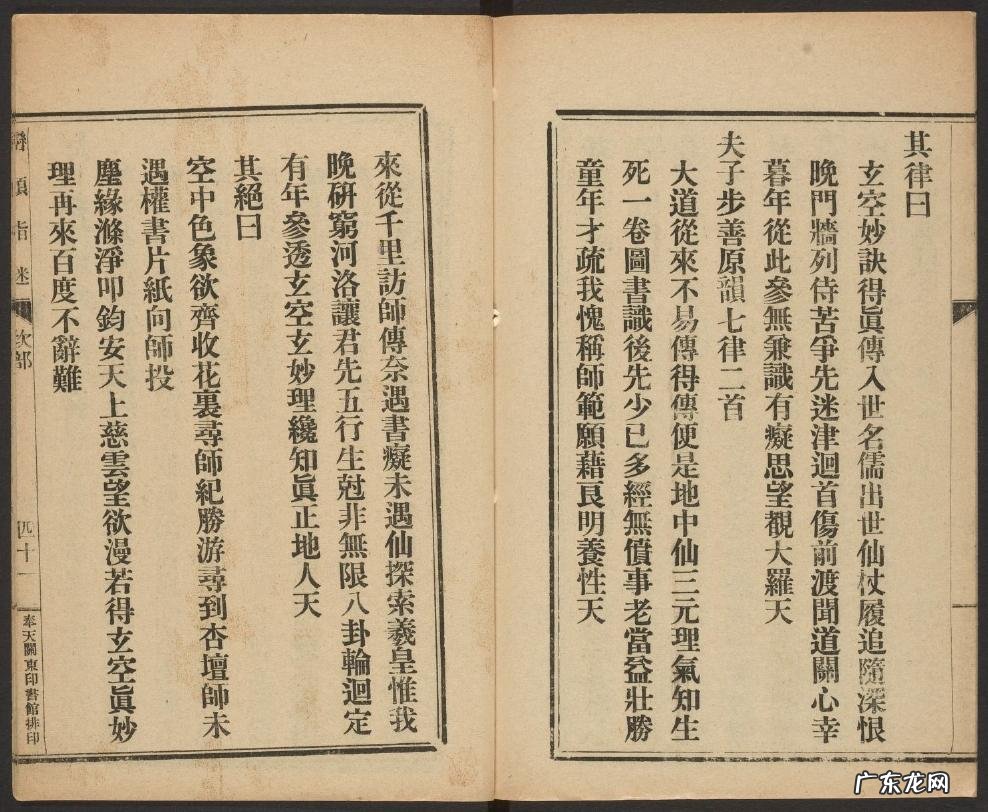 其律曰
玄空妙訣得眞傳入世名儒出世仙杖履追隨深恨
晚門牆列侍苦爭先迷津迴首傷前渡聞道關心幸
暮年從此參無兼識有癡思望觀大羅天
夫子步善原韻七律二首
大道從來不易傳得傳便是地中仙三元理氣知生
死一卷圖書識後先少已多經無僨事老當益壯勝
童年才疏我愧稱師範願藉良明養性天
來從千里訪師傳奈遇書癡未遇仙探索羲皇惟我
晚硏窮河洛讓君先五行生尅非無限八卦輪迴定
有年參透玄空玄妙理纔知眞正地人天
其絕曰
空中色象欲齊收花裏尋師紀勝游尋到杏壇師未
遇權書片紙向師投
塵緣滌淨叩鈞安天上慈雲望欲漫若得玄空眞妙
理再來百度不辭難
指迷
次部
四十一
奉天關東印書館排印
广东龙网